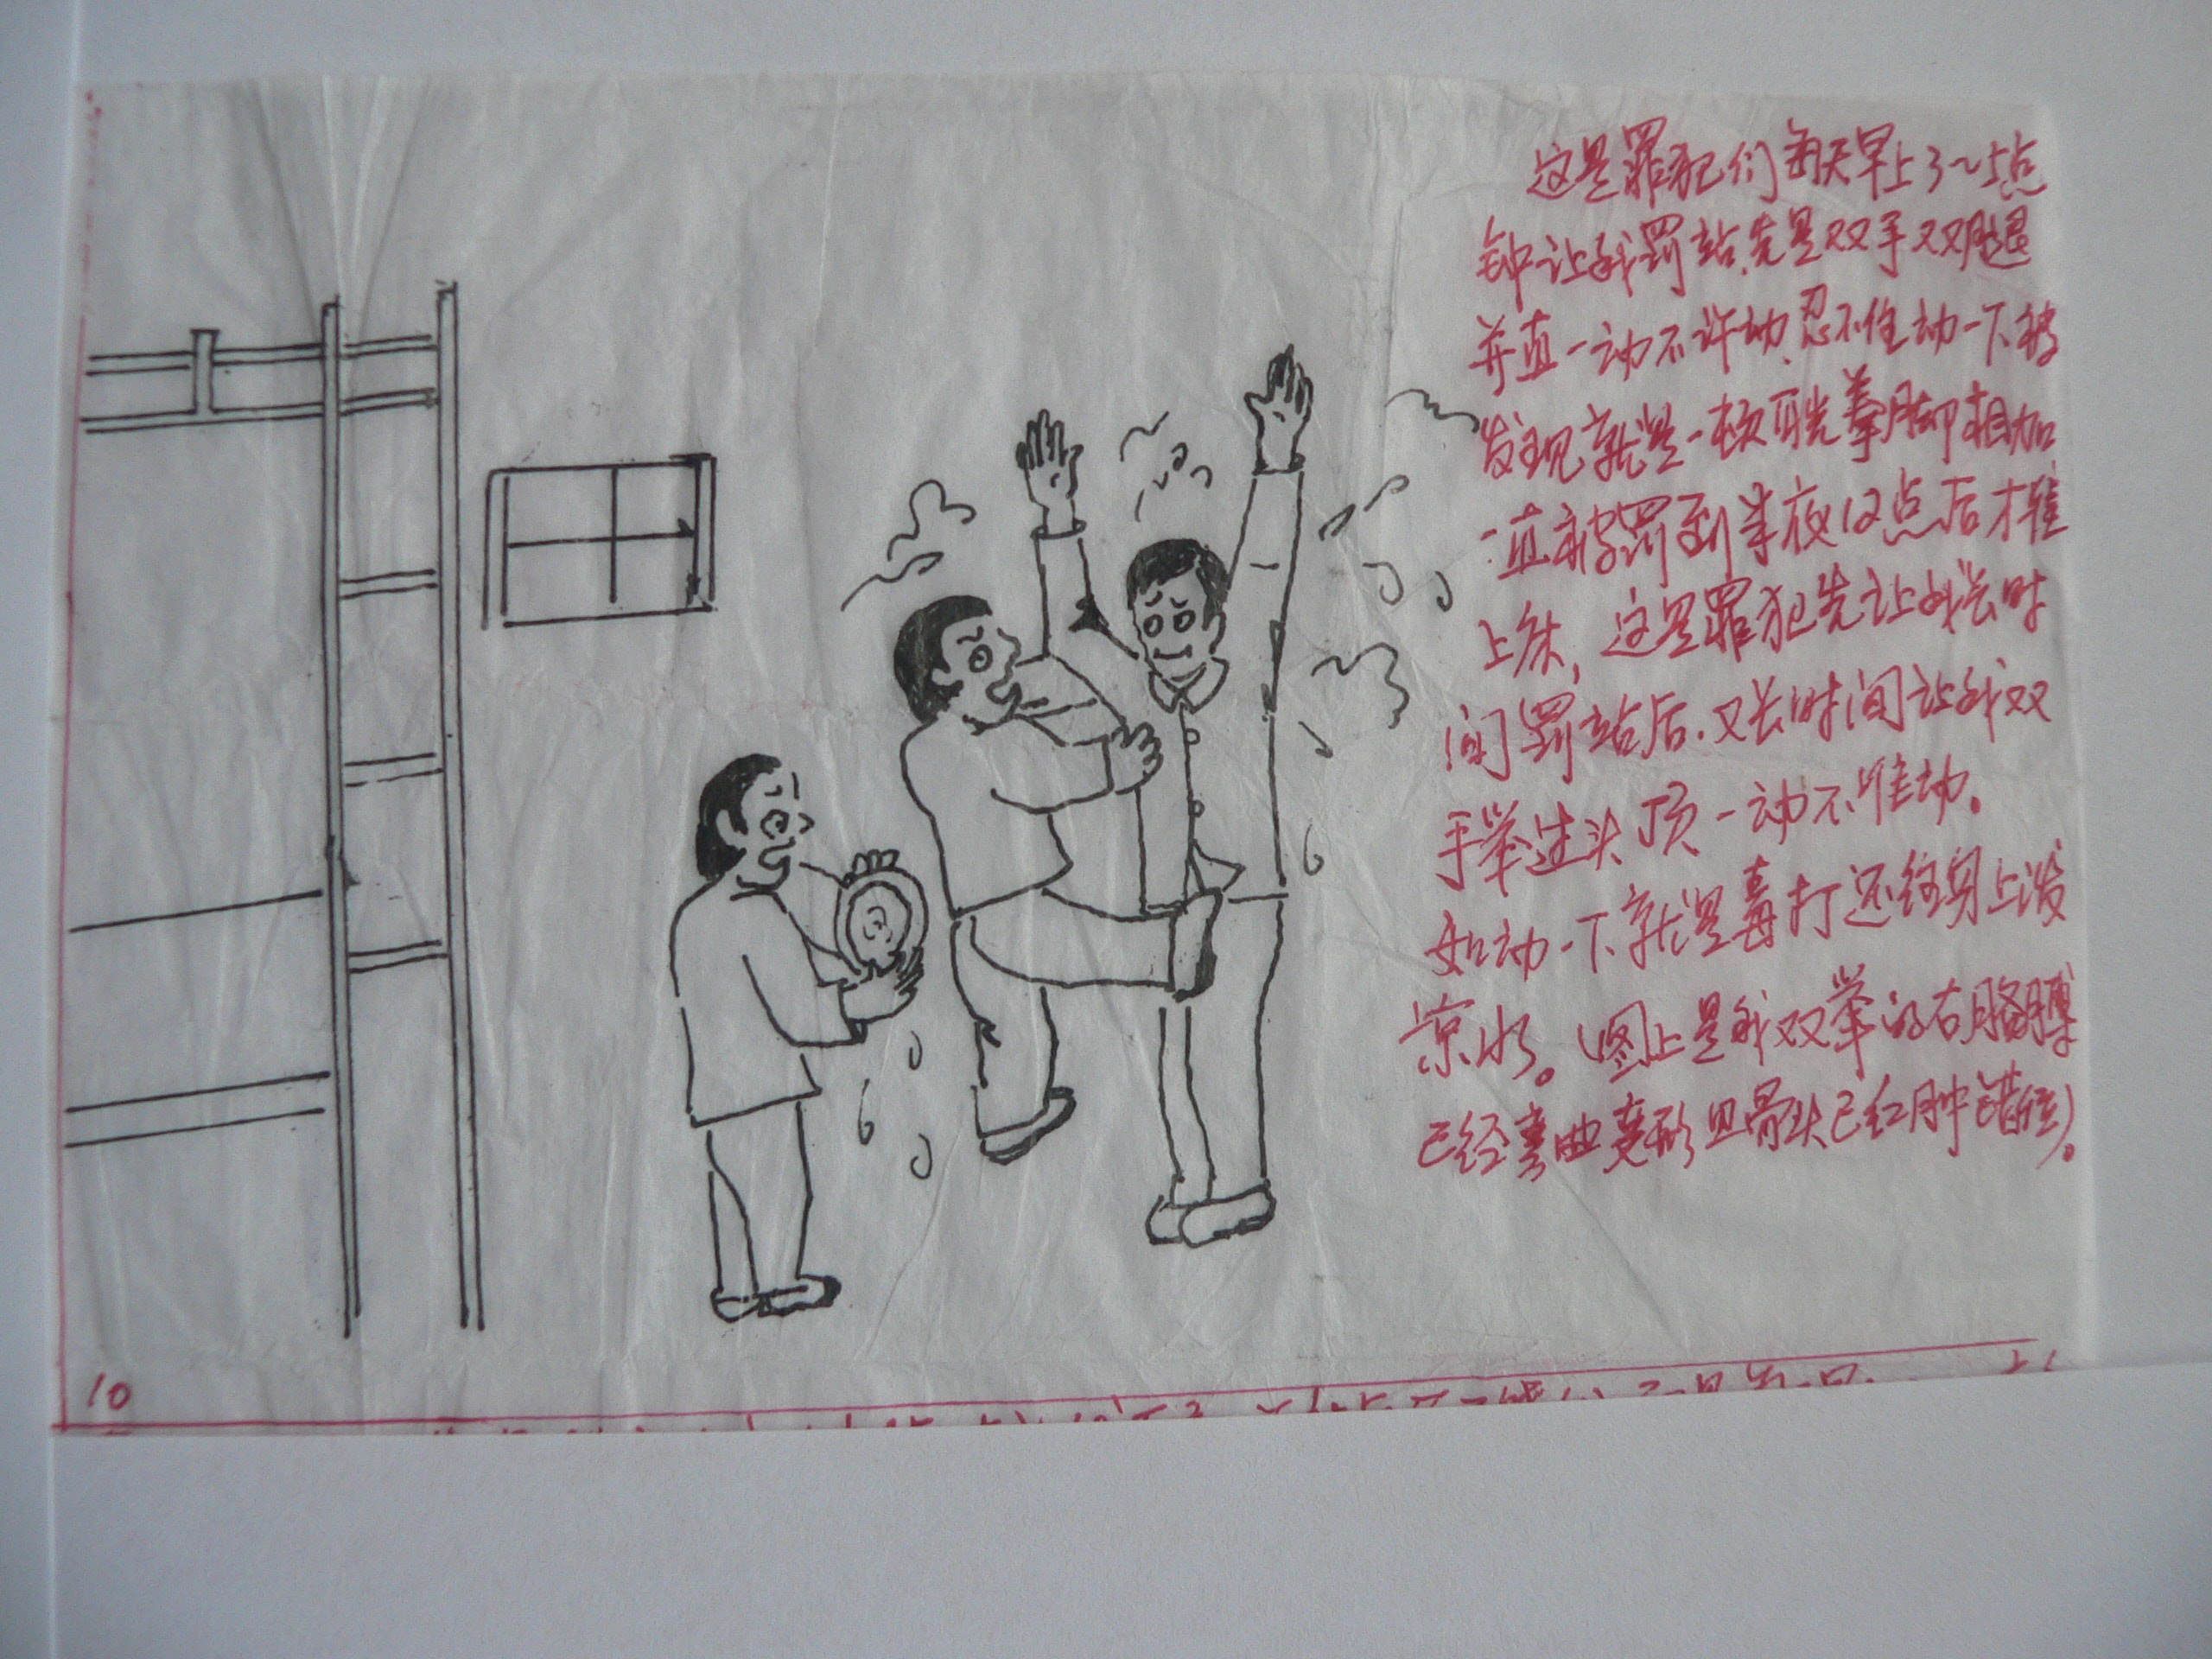 这是罪犯们每天早上3～5点
钟让我罚站,先是双手双腿
并直一动不许动,忍不住动一下被
发现就是一顿 拳脚相加
一直被罚到半夜12点后才准
上床,这是罪犯先让我长时
间罚站后.又长时间让我双
手举过头顶一动不准动。
如动一下就是毒打还往身上泼
凉水。(图上是我双举的右胳膊
已经弯曲变形且骨头已红肿错位)。
10